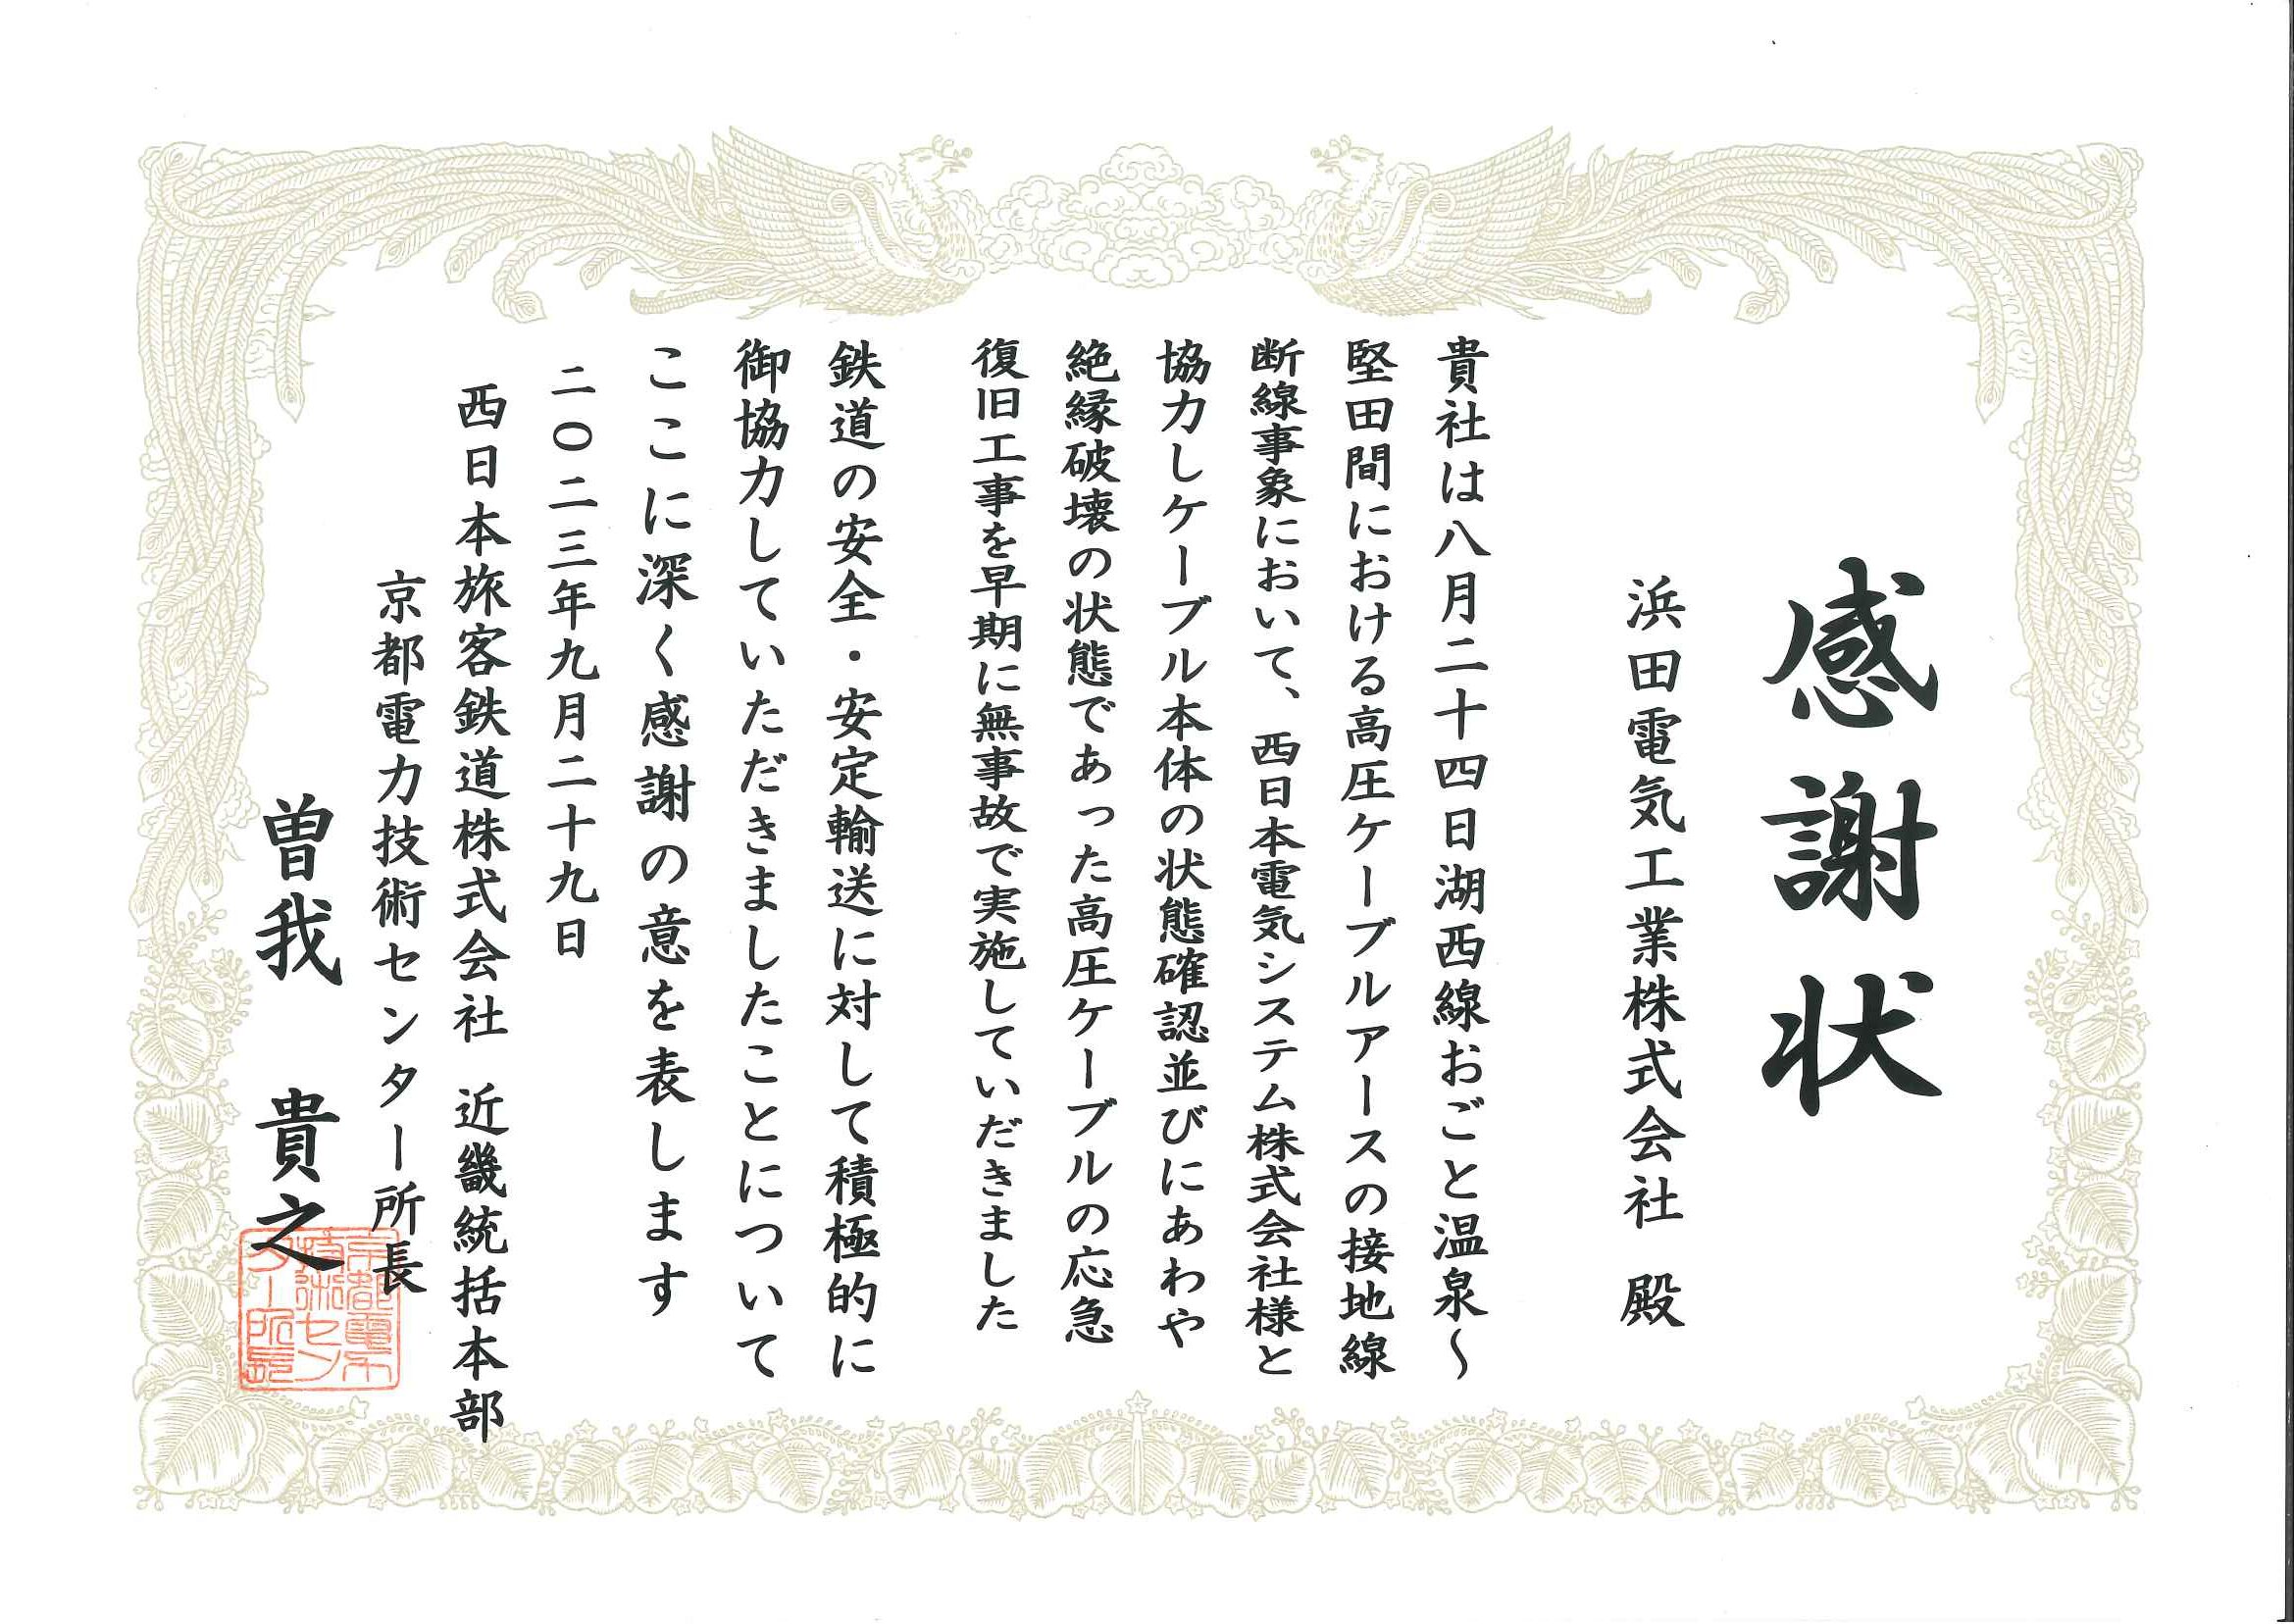 感謝状
浜田電気工業株式会社 殿
貴社は八月二十四日湖西線おごと温泉～
堅田間における高圧ケーブルアースの接地線
断線事象において、西日本電気システム株式会社様と
協力しケーブル本体の状態確認並びにあわや
絶縁破壊の状態であった高圧ケーブルの応急
復旧工事を早期に無事故で実施していだきました
鉄道の安全・安定輸送に対して積極的に
御協力していただきましたことについて
ここに深く感謝の意を表します
二〇二三年九月二十九日
西日本旅客鉄道株式会社 近畿統括本部
京都電力技術センター所長
曽我 貴之
京都電力
技術セン
ター所長